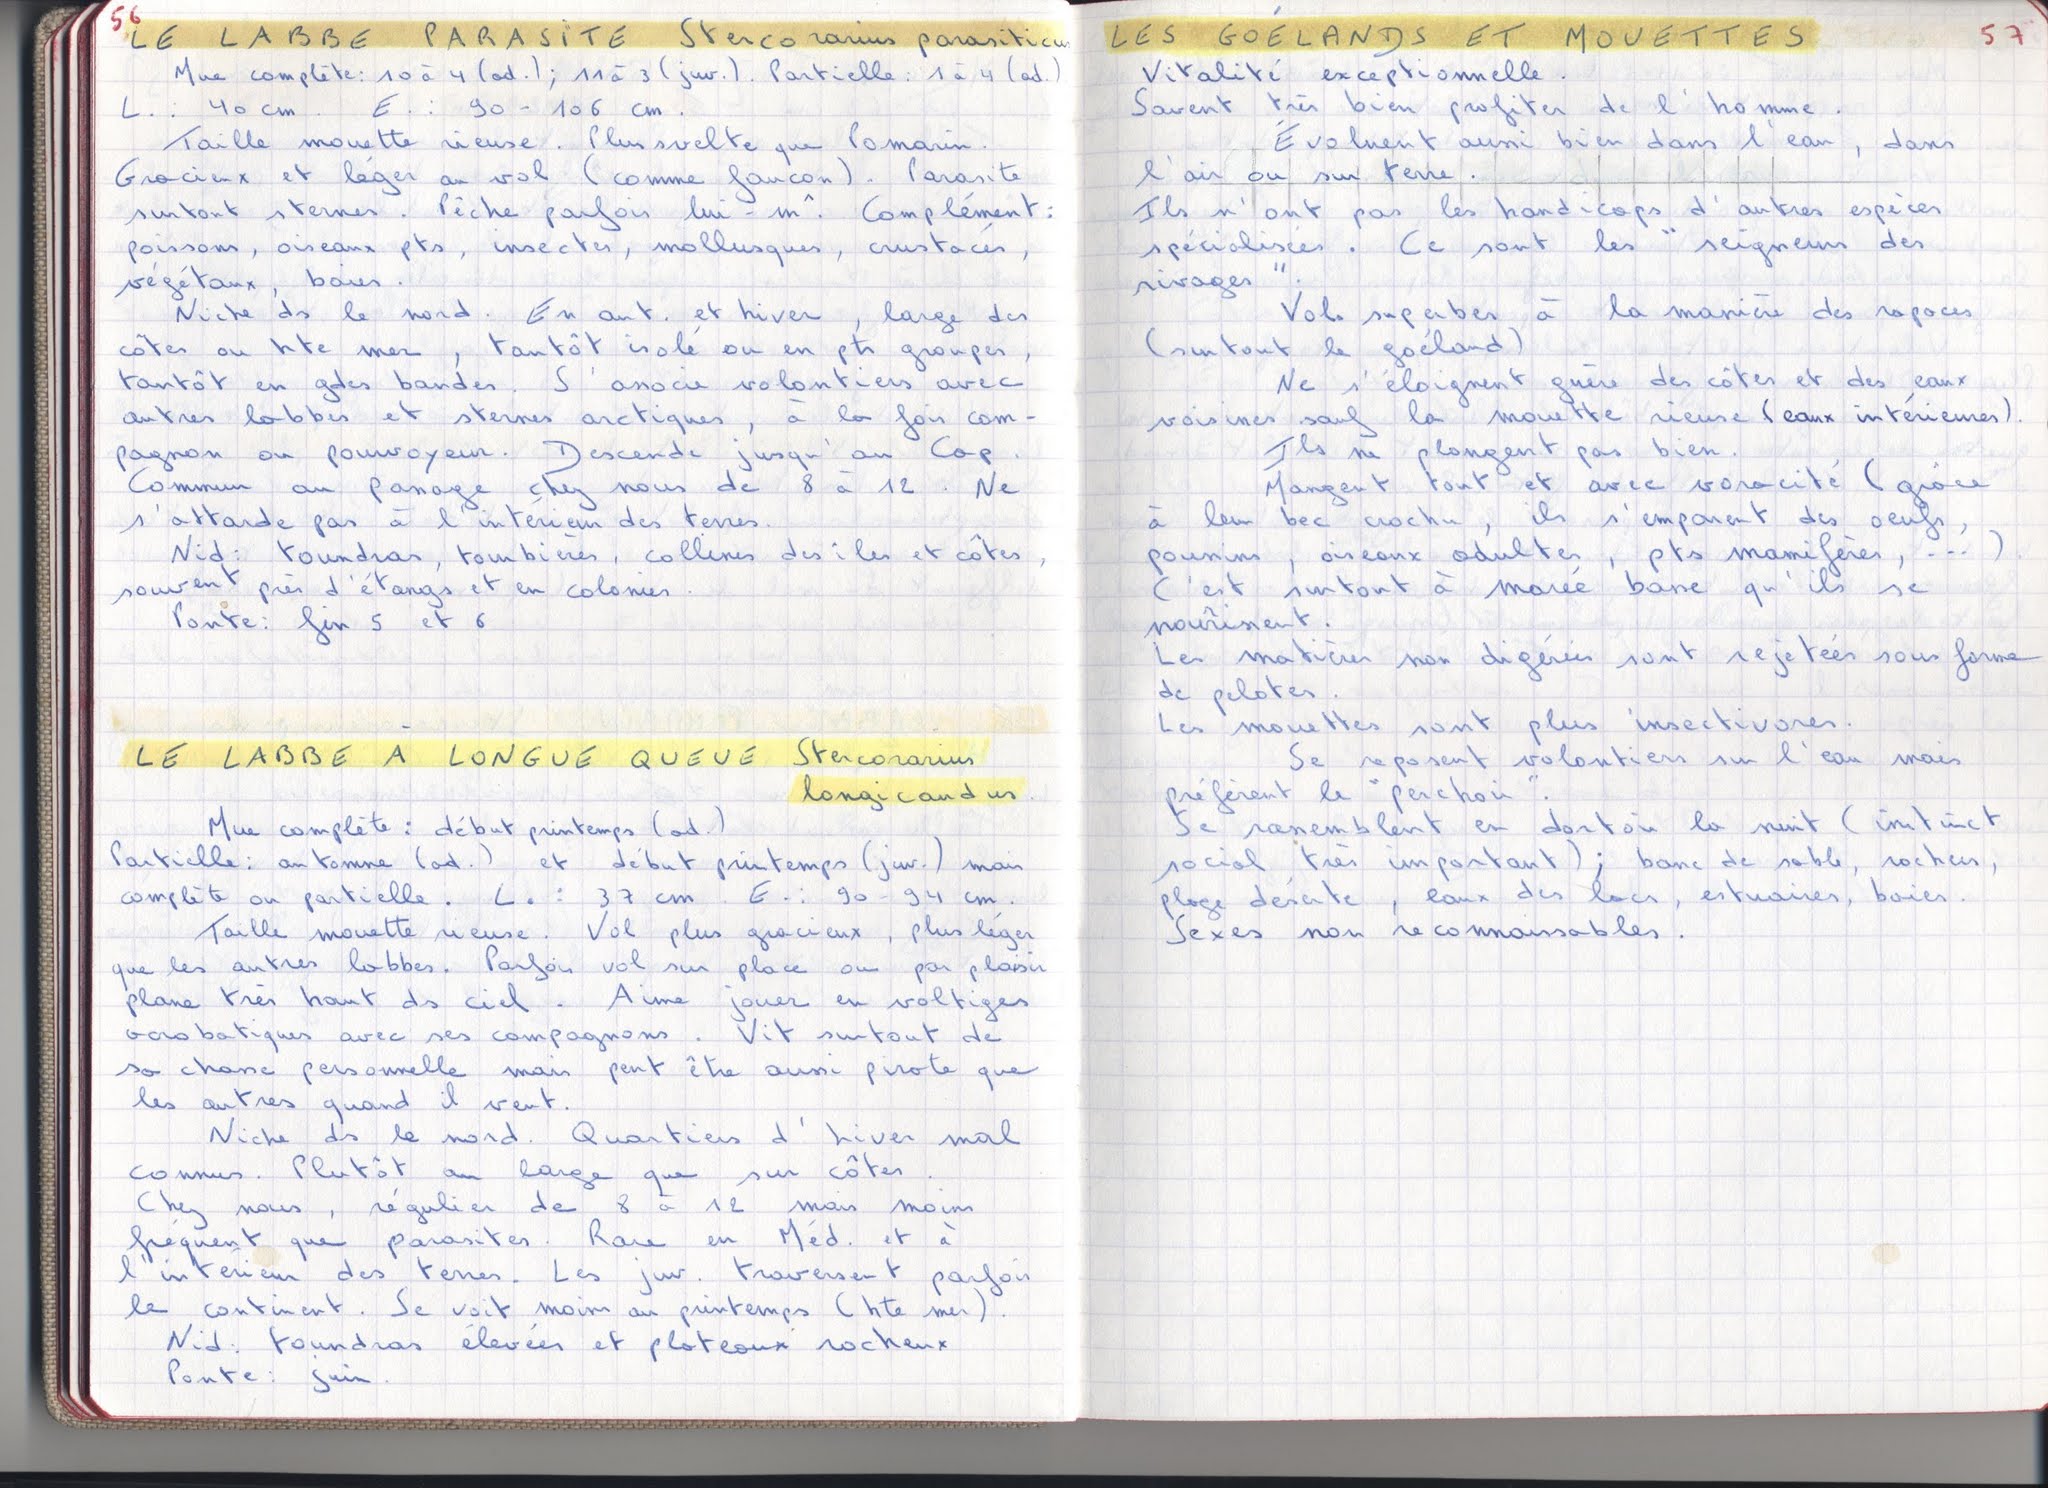 56
LE LABBE PARASITE Stercorarius parasiticus
Mue complète : 10 à 4 (ad.) ; 11 à 3 (juv.). Partielle : 1 à 4 (ad.)
L. : 40 cm. E. : 90 - 106 cm.
Taille mouette rieuse. Plus svelte que Pomarin.
Gracieux et léger au vol (comme faucon). Parasite
surtout sternes. Pêche parfois lui-m^. Complément :
poissons, oiseaux pts, insectes, mollusques, crustacés,
végétaux, baies.
Niche ds le nord. En aut. et hiver, large des
côtes ou hte mer, tantôt isolé ou en pts groupes,
tantôt en gdes bandes. S'associe volontiers avec
autres labbes et sternes arctiques, à la fois com-
pagnon ou pourvoyeur. Descende jusqu'au Cap.
Commun au passage chez nous de 8 à 12. Ne
s'attarde pas à l'intérieur des terres.
Nid : toundras, tourbières, collines des îles et côtes,
souvent près d'étangs et en colonies.
Ponte : fin 5 et 6
LE LABBE À LONGUE QUEUE Stercorarius
longicaudus.
Mue complète : début printemps (ad.)
Partielle : automne (ad.) et début printemps (juv.) mais
complète ou partielle. L. : 37 cm. E. : 90 - 94 cm.
Taille mouette rieuse. Vol plus gracieux, plus léger
que les autres labbes. Parfois vol sur place ou par plaisir
plane très haut ds ciel. Aime jouer en voltiges
acrobatiques avec ses compagnons. Vit surtout de
sa chasse personnelle mais peut être aussi pirate que
les autres quand il veut.
Niche ds le nord. Quartiers d'hiver mal
connus. Plutôt au large que sur côtes.
Chez nous, régulier de 8 à 12 mais moins
fréquent que parasites. Rare en Méd. et à
l'intérieur des terres. Les juv. traversent parfois
le continent. Se voit moins au printemps (hte mer).
Nid : toundras élevées et plateaux rocheux
Ponte : juin.
LES GOÉLANDS ET MOUETTES 57
Vitalité exceptionnelle.
Savent très bien profiter de l'homme.
Évoluent aussi bien dans l'eau, dans
l'air ou sur terre.
Ils n'ont pas les handicaps d'autres espèces
spécialisées. Ce sont les "seigneurs des
rivages".
Vols superbes à la manière des rapaces
(surtout le goéland)
Ne s'éloignent guère des côtes et des eaux
voisines sauf la mouette rieuse (eaux intérieures).
Ils ne plongent pas bien.
Mangent tout et avec voracité (grâce
à leur bec crochu, ils s'emparent des oeufs,
poussins, oiseaux adultes, pts mamifères, ...).
C'est surtout à marée basse qu'ils se
nourîssent.
Les matières non digérées sont rejetées sous forme
de pelotes.
Les mouettes sont plus insectivores.
Se reposent volontiers sur l'eau mais
préfèrent le "perchoir".
Se rassemblent en dortoir la nuit (instinct
social très important) ; banc de sable, rochers,
plage déserte, eaux des lacs, estuaires, baies.
Sexes non reconnaissables.